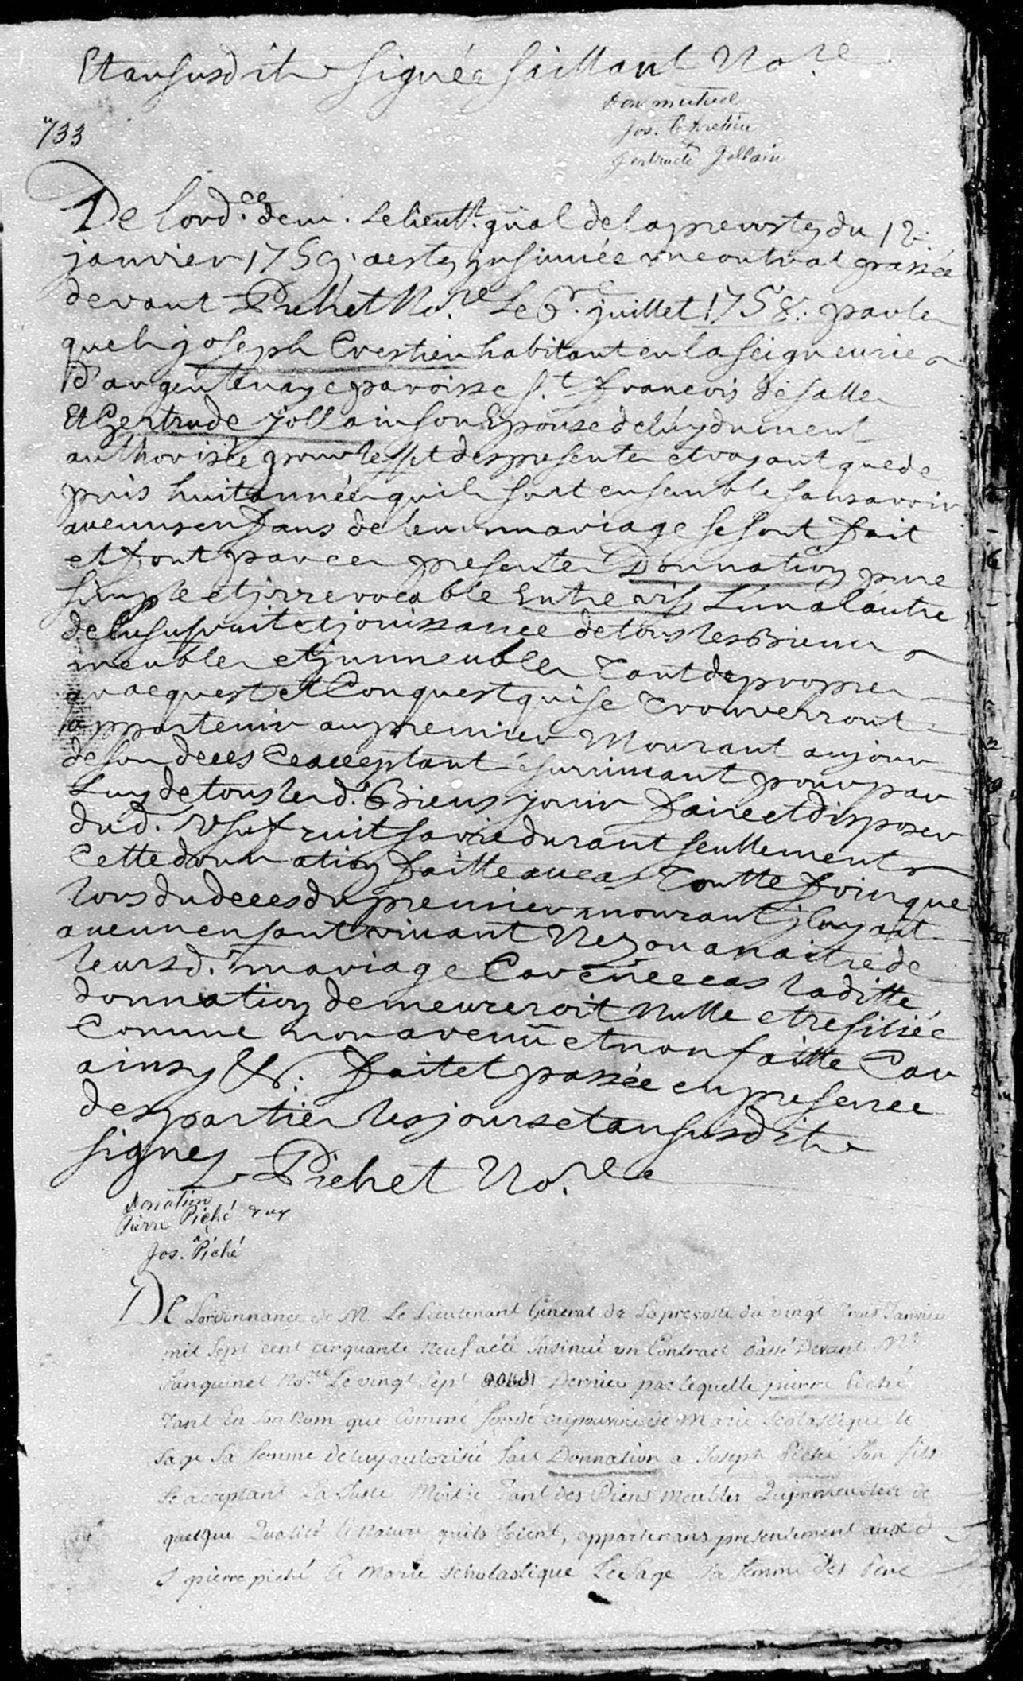 Et an susdits signée Saillant No.re
Don mutuel
Jos. Chretien
Gertrude Jollain
733
De lord.ce de m. Le lieut.t gñal de la prevosty du 12.
janvier 1759; a esty insinuée un contrat passée
devant Pichet No.re Le 6.e juillet 1758. par le
quel joseph Crestien habitant en la seigneurie
d'argentenaye paroisse S.t francois de salle
Et Gertrude jollain son Epouse de luy duement
authorisée pour les dt des presente et voyant que de
puis huit année quils sont ensemble sans avoir
aucuns enfans de leur mariage se sont fait
et font par ces presente Donnation pure
simple et jrrevocable Entre vifs Lun a lautre
de lusufruit et jouissance de tous les Biens
meubles et jmmeubles Tant de propre
acquest et Conquest qui se Trouverront
appartenir au premier Mourant au jour
de son deces Ce acceptant survivant pour par
Luy de tous les d. Biens jouir faire et disposer
du d. Usufruit sa vie durant seullement
Cette donnation faitte au cas Toutte fois que
lors du deces du premier mourant jl ny ait
aucun enfant vivant Nez ou a naitre de
leurs d. mariage Car en ce cas laditte
donnation demeureroit Nulle et resiliée
Comme non avenü et non faitte Car
ainsy &c. fait et passée en presence
des partie les jours et an susdits
signez Pichet No.re
donation
Pierre Piché & ux
à
Jos. Piché
De Lordonnance de M Le Lieutenant General de La prevosté du vingt Trois Janvier
mil Sept cent cinquante Neuf a été Insinué un Contract Passé Devant M.e
Sanguinet No.re Le vingt Sept aoust Dernier par lequelle pierre piché
Tant En Son Nom que Comme fondé de pouvoir de Marie Scolastique le
Sage Sa femme de luy autorisée fait Donnation a Joseph Piché Son fils
Ce acceptant La Juste Moitié Tant des Biens Meubles Qu'immeubles de
quelque Qualité & Nature quils Soient, appartenans présentement aux d
S pierre piché & Marie Scholastique Le Sage Sa femme Des Père